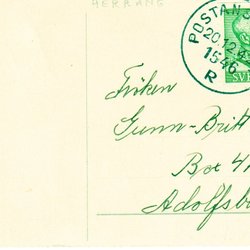 HERRÄNG
POSTANS
20.12.4
1546
R
SVE
Fröken
Gunn-Britt
Box 4
Adolfsb